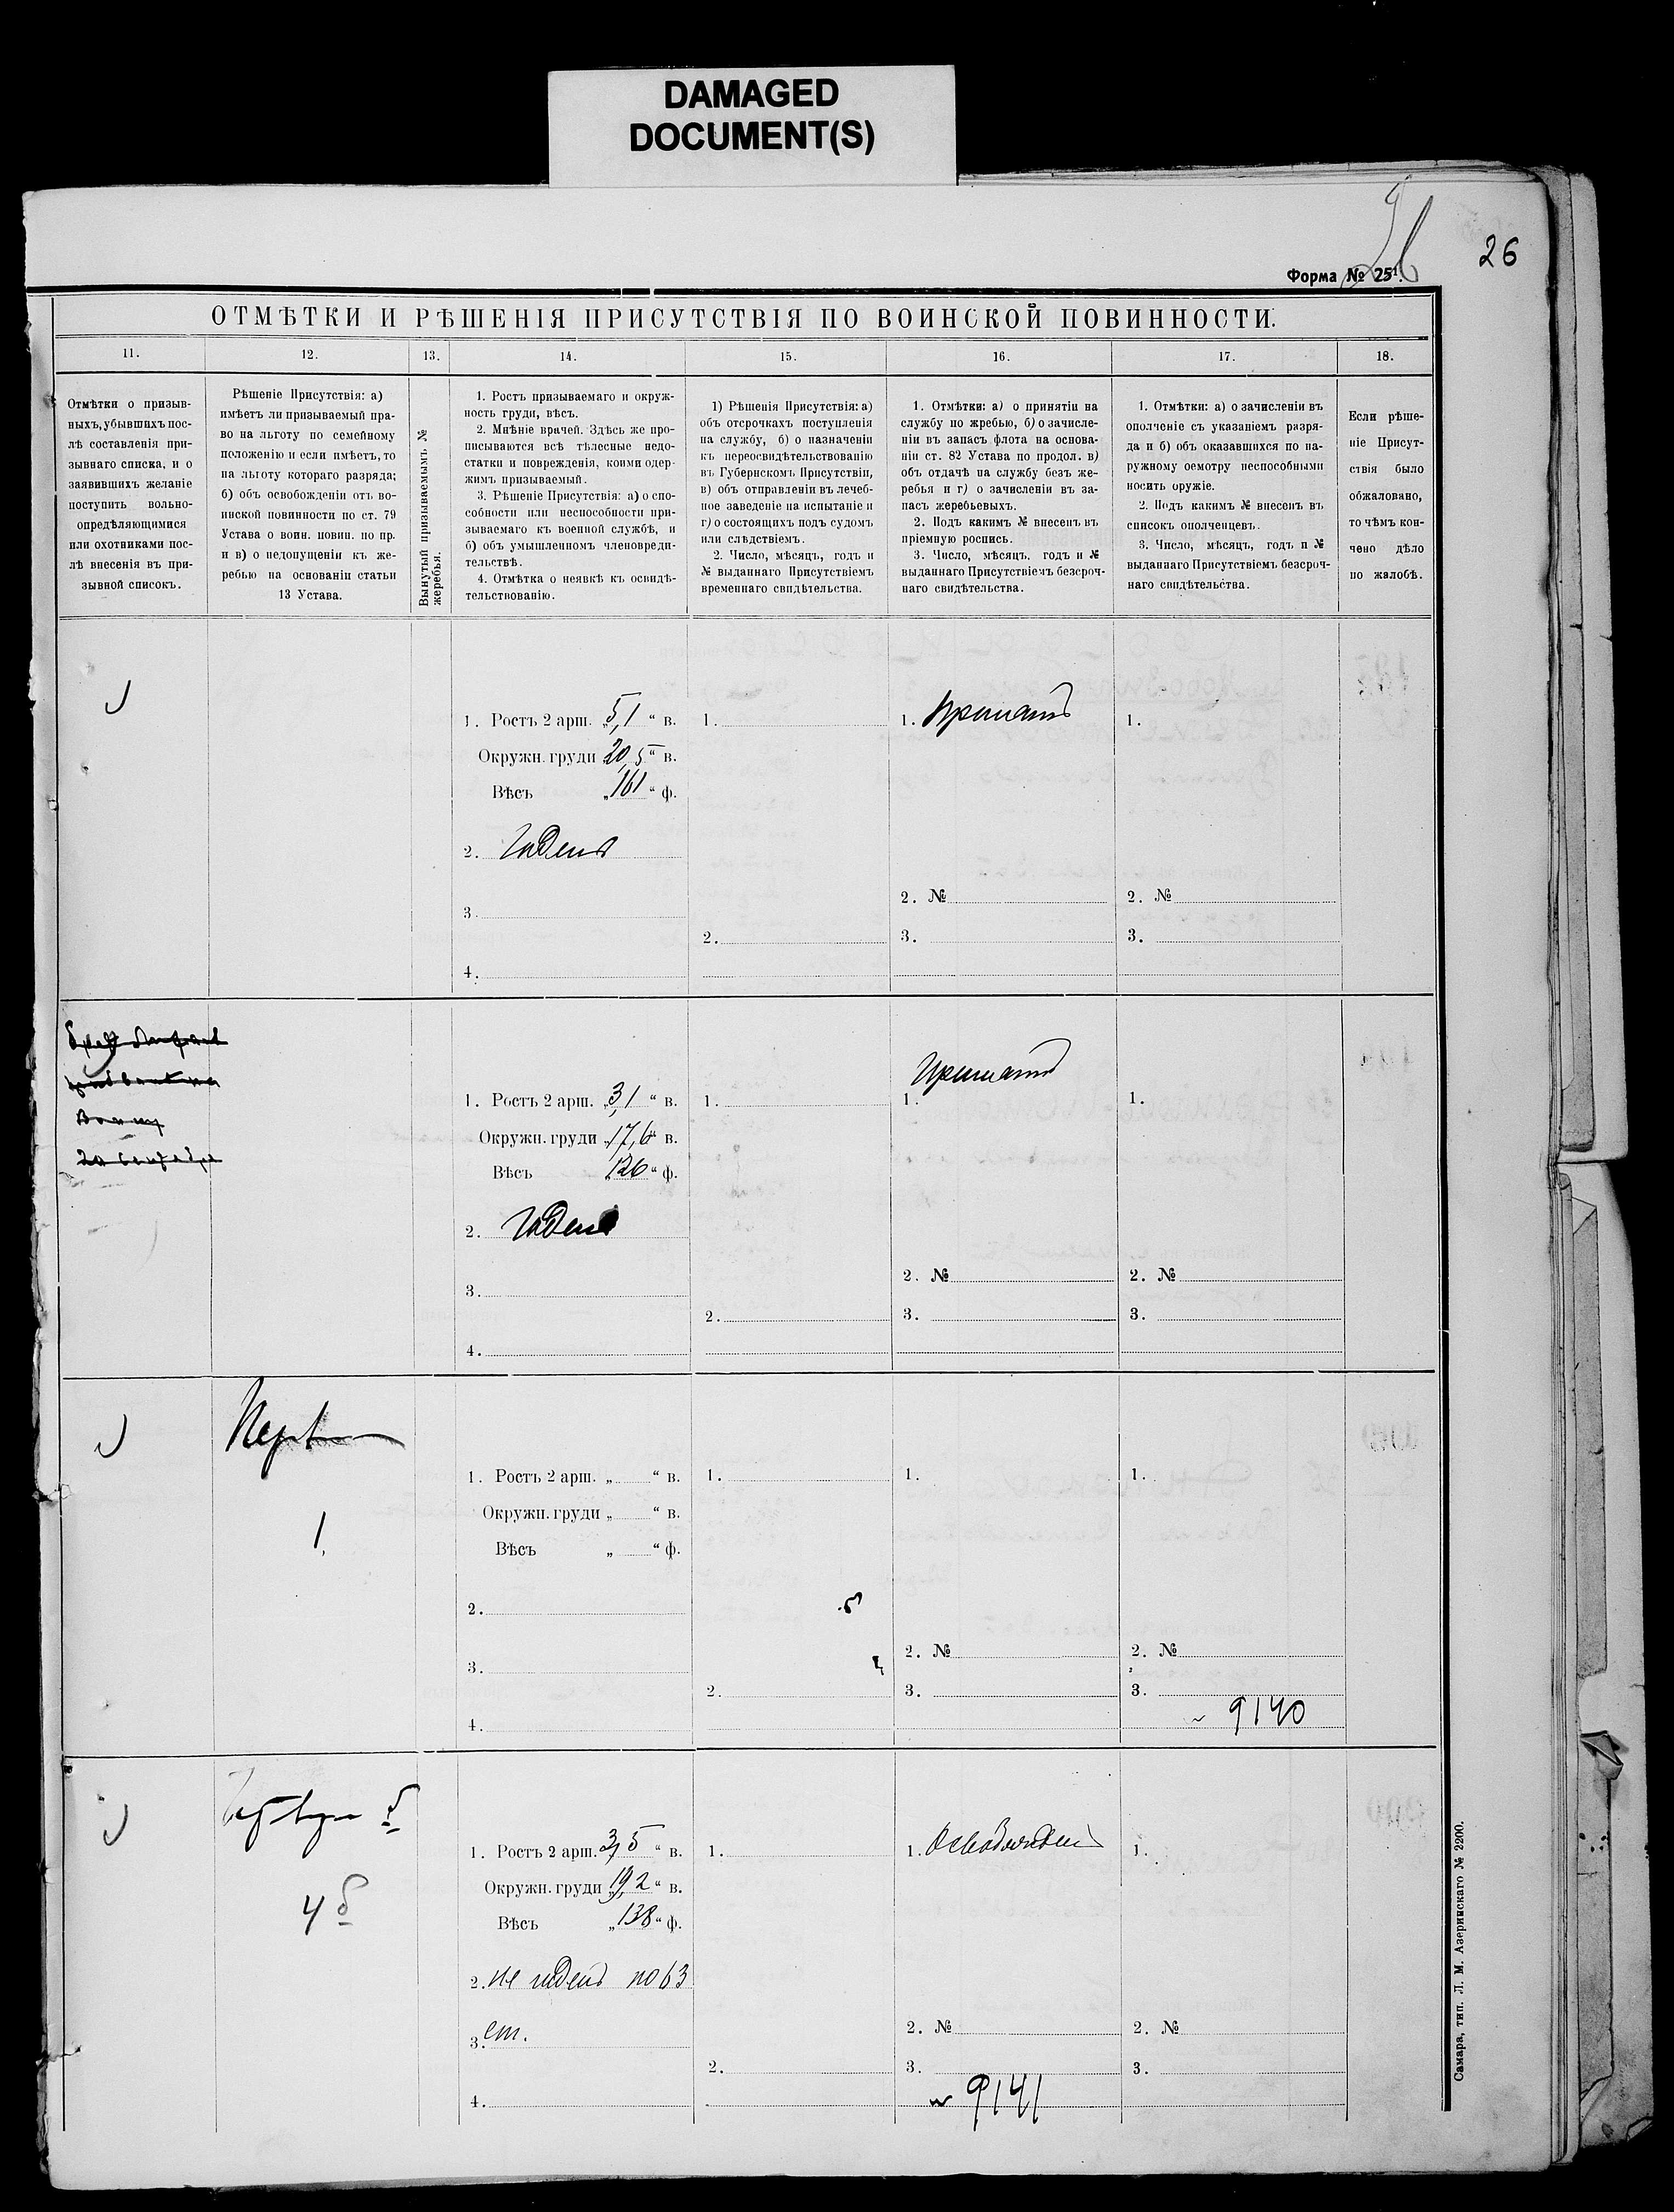 DAMAGED
DOCUMENT(S)
26
26
Форма № 25¹.
ОТМѢТКИ И РѢШЕНІЯ ПРИСУТСТВІЯ ПО ВОИНСКОЙ ПОВИННОСТИ.
11.
12.
13.
14.
15.
16.
17.
18.
Отмѣтки о призыв-
ныхъ, убывшихъ пос-
лѣ составленія при-
зывнаго списка, и о
заявившихъ желаніе
поступить вольно-
опредѣляющимися
или охотниками пос-
лѣ внесенія въ при-
зывной список.
Рѣшеніе Присутствія: а)
имѣетъ ли призываемый пра-
во на льготу по семейному
положенію и если имѣетъ, то
на льготу котораго разряда;
б) объ освобожденіи отъ во-
инской повинности по ст. 79
Устава о воин. повин. по пр.
и в) о недопущеніи къ же-
ребью на основаніи статьи
13 Устава.
Вынутый призываемымъ №
жеребья.
1. Ростъ призываемаго и окруж-
ность груди, вѣсъ.
2. Мнѣніе врачей. Здѣсь же про-
писываются всѣ тѣлесные недо-
статки и поврежденія, коими одер-
жимъ призываемый.
3. Рѣшеніе Присутствія: а) о спо-
собности или неспособности при-
зываемаго къ военной службѣ, и
б) объ умышленномъ членовреди-
тельствѣ.
4. Отмѣтка о неявкѣ къ освидѣ-
тельствованію.
1) Рѣшенія Присутствія: а)
объ отсрочкахъ поступленія
на службу, б) о назначеніи
къ переосвидѣтельствованію
въ Губернскомъ Присутствіи,
в) объ отправленіи въ лечеб-
ное заведеніе на испытаніе и
г) о состоящихъ подъ судомъ
или слѣдствіемъ.
2. Число, мѣсяцъ, годъ и
№ выданнаго Присутствіемъ
временнаго свидѣтельства.
1. Отмѣтки: а) о принятіи на
службу по жребью, б) о зачисле-
ніи въ запасъ флота на основа-
ніи ст. 82 Устава по продол. в)
объ отдачѣ на службу безъ же-
ребья и г) о зачисленіи въ за-
пасъ жеребьевыхъ.
2. Подъ какимъ № внесенъ въ
пріемную роспись.
3. Число, мѣсяцъ. годъ и №
выданнаго Присутствіемъ безсроч-
наго свидѣтельства.
1. Отмѣтки: а) о зачисленіи въ
ополченіе съ указаніемъ разря-
да и б) объ оказавшихся по на-
ружному осмотру неспособными
носить оружіе.
2. Подъ какимъ № внесенъ въ
списокъ ополченцевъ.
3. Число, мѣсяцъ, годъ и №
выданнаго Присутствіемъ безсроч-
наго свидѣтельства.
Если рѣше-
ніе Присут-
ствія было
обжаловано,
то чѣмъ кон-
чено дѣло
по жалобѣ.
1. Ростъ 2 арш. „5,1 “ в.
Окружн. груди 20,5 “ в.
Вѣсъ „161 “ ф.
2. Годенъ
3.
4.
1.
2.
1. Принятъ
2. №
3.
1.
2. №
3.
1. Ростъ 2 арш. „3,1 “ в.
Окружн. груди „17,6 “ в.
Вѣсъ 126 “ ф.
2. Годенъ
3.
4.
1.
2.
Принятъ
1.
2. №
3.
1.
2. №
3.
1.
1. Ростъ 2 арш. „ “ в.
Окружн. груди „ “ в.
Вѣсъ „ “ ф.
2.
3.
4.
1.
2.
1.
2. №
3.
1.
2. №
3.
9140
4 б
1. Ростъ 2 арш. 3,5 “ в.
Окружн. груди 19,2 “ в.
Вѣсъ „138 “ ф.
2. не годенъ по 63
3. ст.
4.
1.
2.
1. Освобожденъ
2. №
3.
9141
1.
2. №
3.
Самара, тип. Л. М. Азеринскаго № 2200.